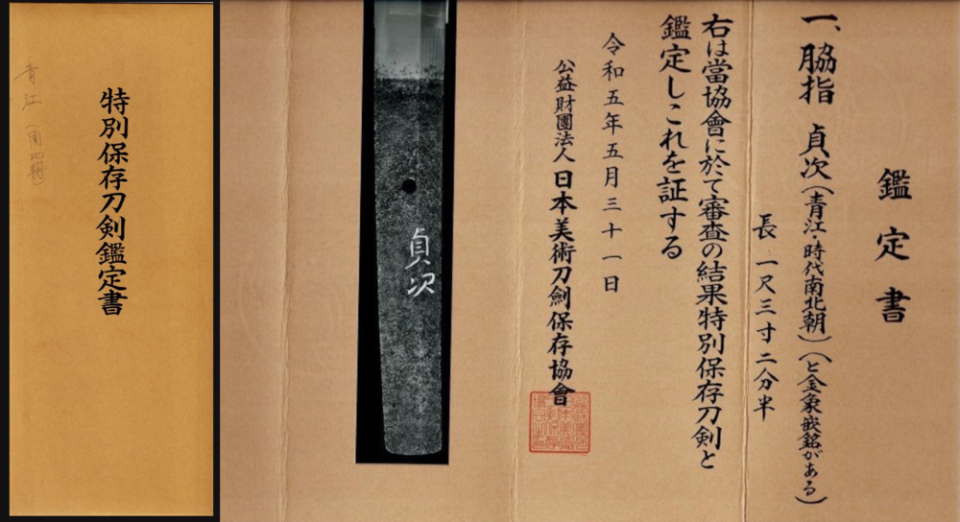 特別保存刀剣鑑定書
青江
南北朝
鑑定書
一、脇指 貞次(青江・時代南北朝)(と金象嵌銘がある)
長 一尺三寸二分半
右は當協會に於て審査の結果特別保存刀剣と
鑑定しこれを証する
令和五年五月三十一日
公益財團法人 日本美術刀劍保存協會
貞次